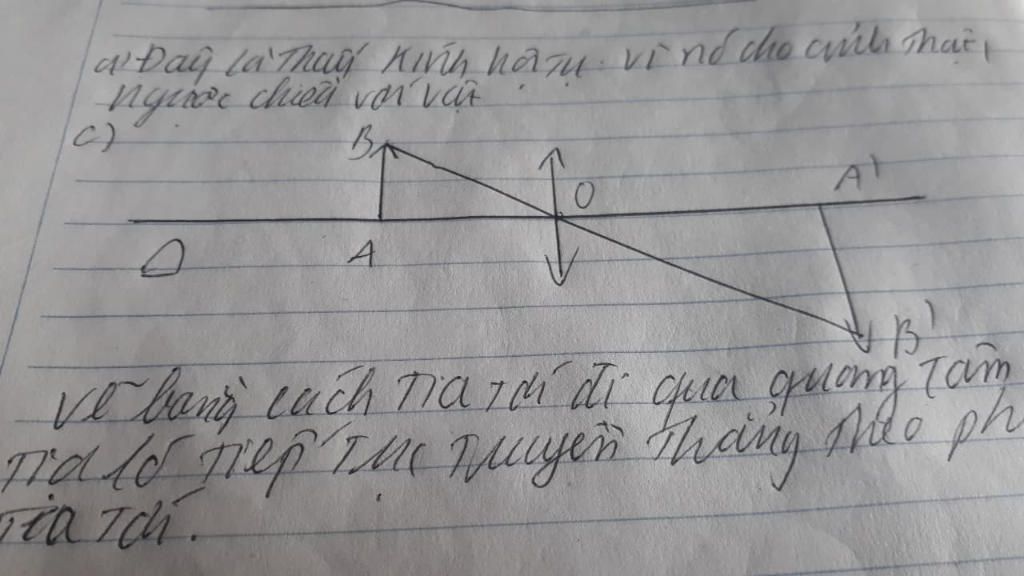 a) Đây là thấy kính hội tụ. vì nó cho ảnh thật,
ngược chiều với vật
c)
B
O
A'
Δ
A
B'
vẽ bằng cách tia tới đi qua quang tâm
tia ló tiếp tục truyền thẳng theo ph
tia tới.